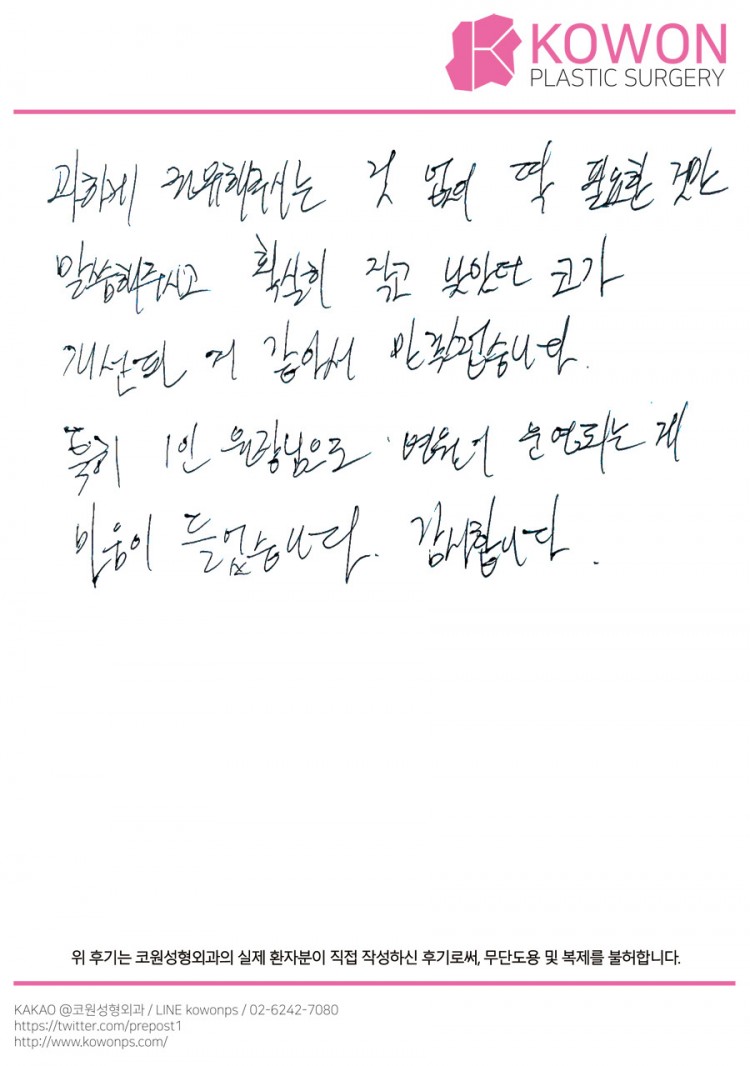 KOWON
PLASTIC SURGERY
과하게 권유해주시는 것 없이 딱 필요한 것만
말씀해주시고 확실히 작고 낮았던 코가
개선된 거 같아서 만족스럽습니다.
특히 1인 원장님으로 병원이 운영되는 게
믿음이 들었습니다. 감사합니다.
위 후기는 코원성형외과의 실제 환자분이 직접 작성하신 후기로써, 무단도용 및 복제를 불허합니다.
KAKAO @코원성형외과 / LINE kowonps / 02-6242-7080
https://twitter.com/prepost1
http://www.kowonps.com/